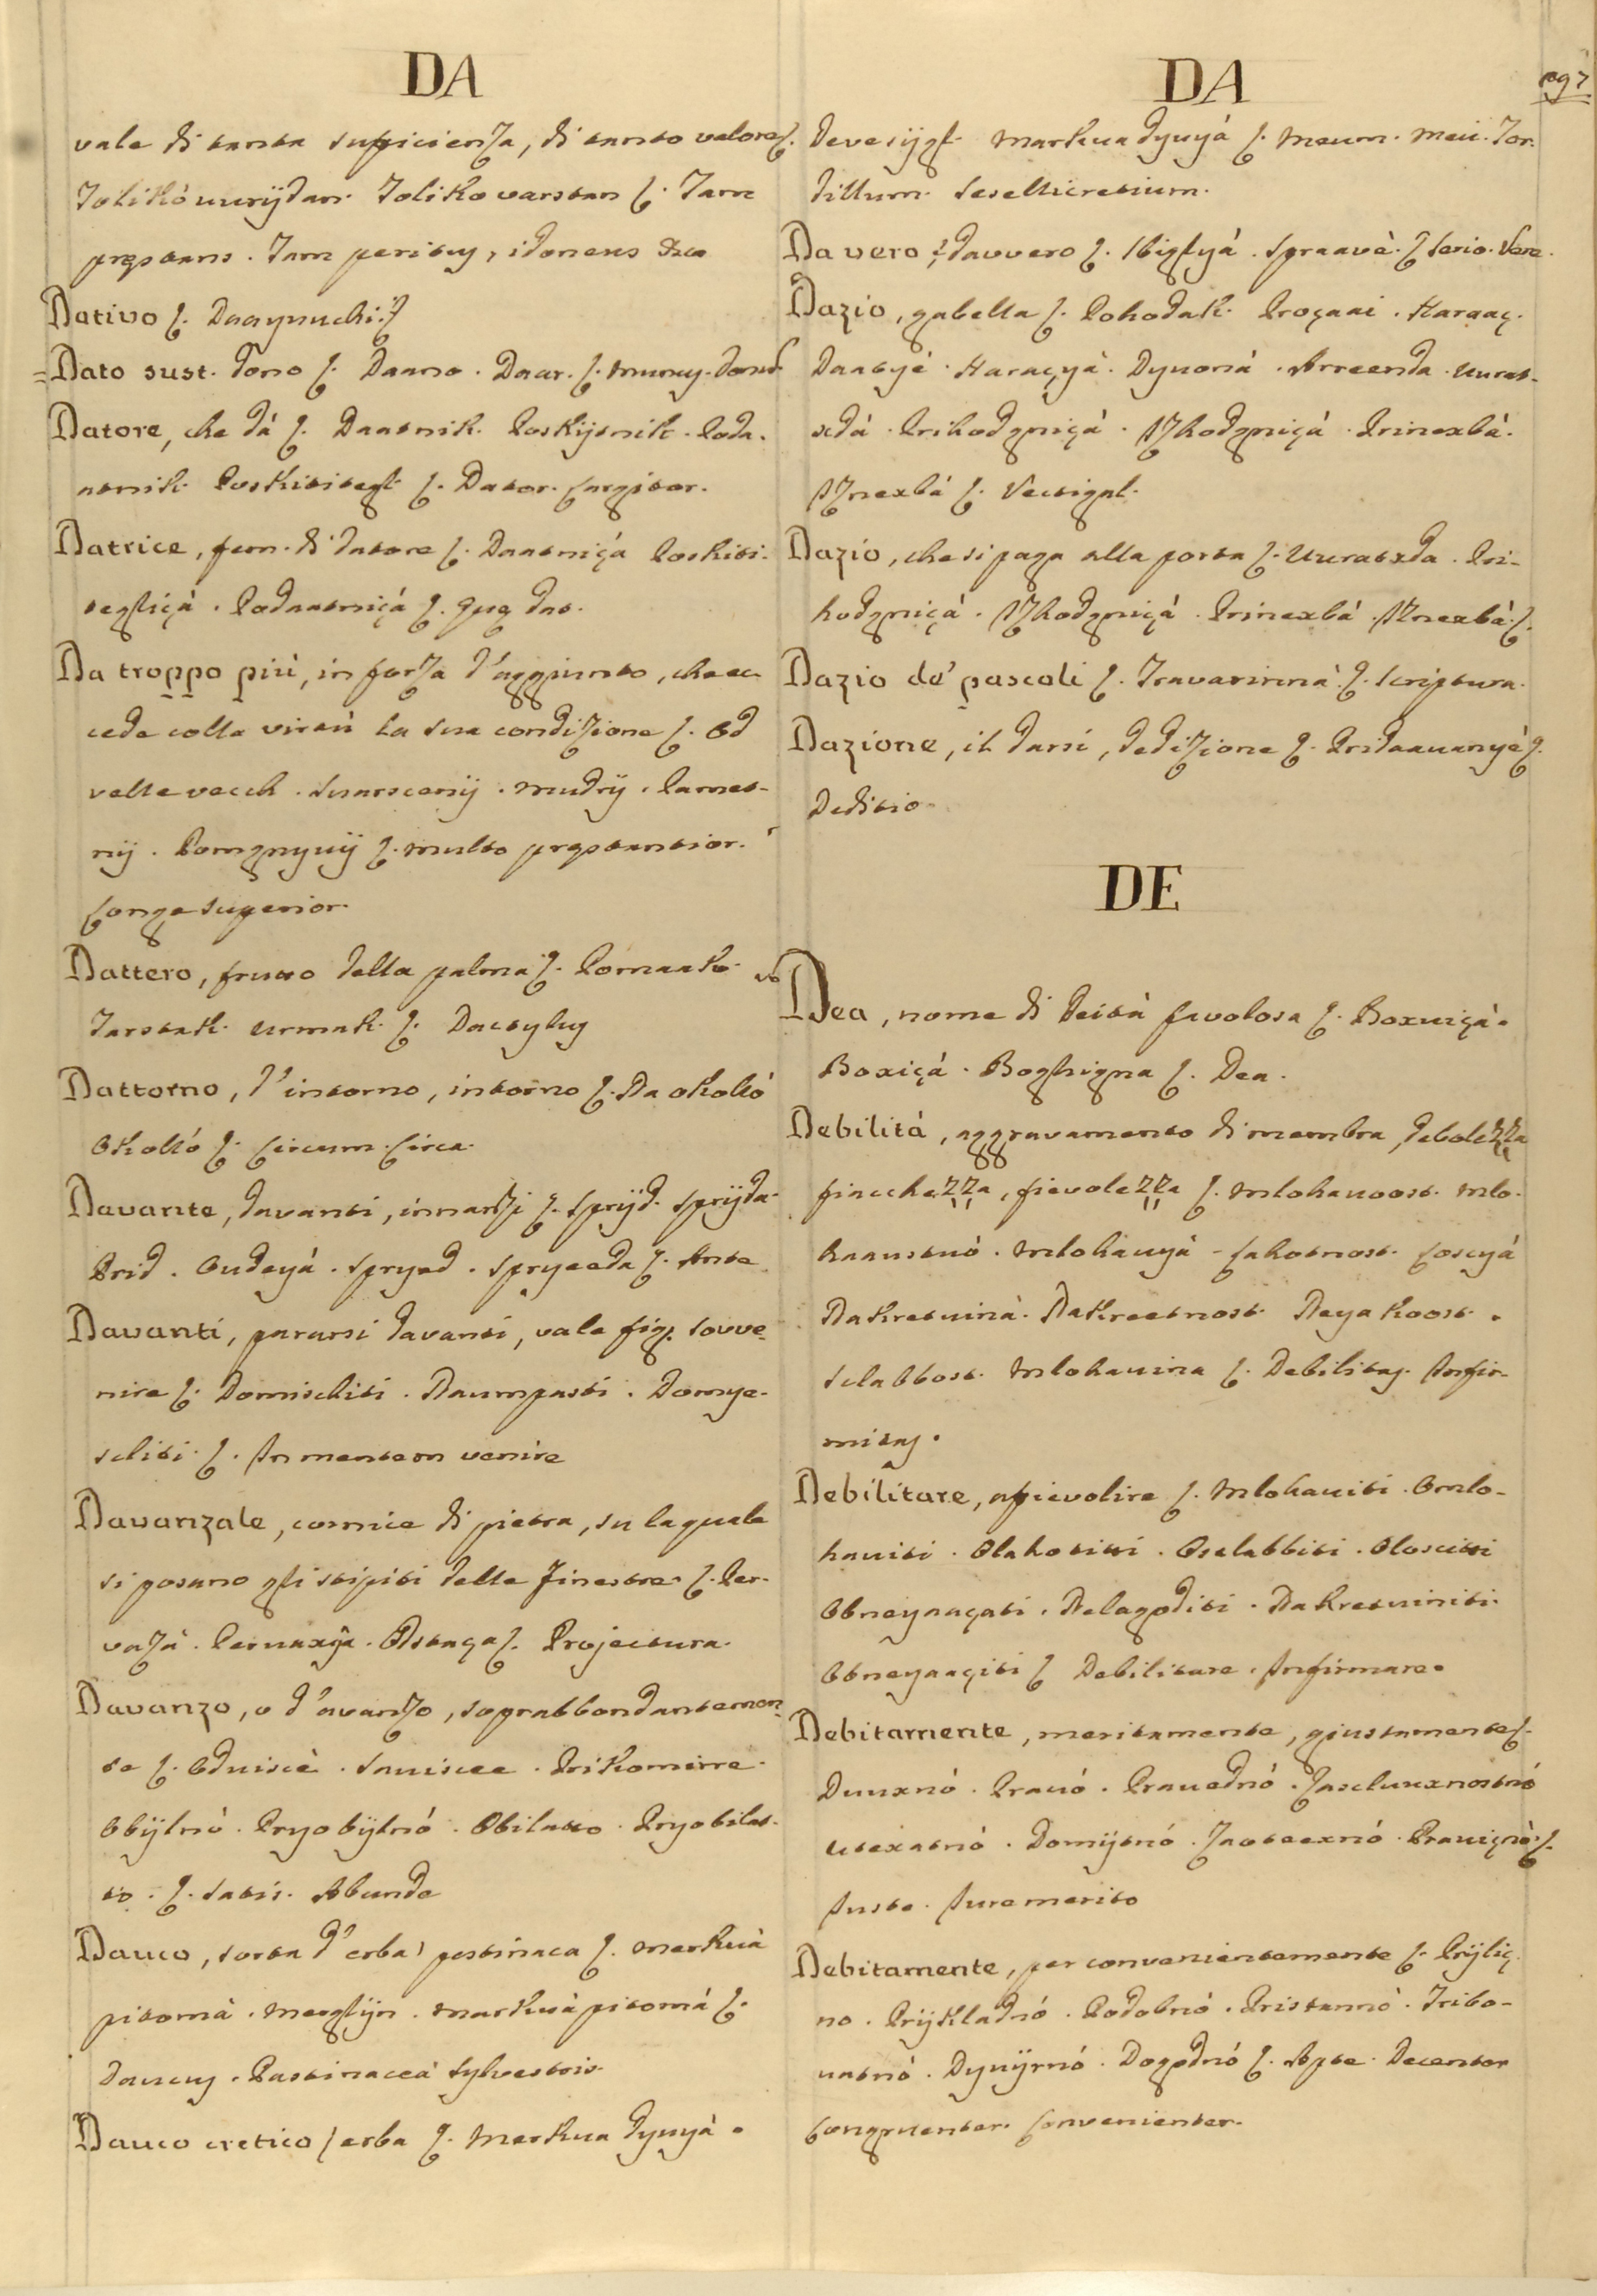 DA
vale di tanta suficienza, di tanto valore ſ.
Tolikó urijdan. Toliko varstan ſ. Tam
pręstans. Tam peritus, idoneus
Dativo ſ. Daayuuchi. ſ
Dato sust. dono ſ. Daano. Daar. ſ. munus. donū
Datore, che dá ſ. Daatnik. Poskijtnik. Poda-
atnik. Poskititegl. ſ. Dator. Largitor.
Datrice, fem. di datore ſ. Daatniçá Poskiti-
tegliçá. Podaatniçá ſ. Quę dat.
Da troppo piú, in forza d'aggiunto, che ec
cede colla virtú la sua condizione ſ. Od
velle vecch. Suarscenij. Mudrij. Pamet-
nij. Pomgnyuij ſ. multo pręstantior.
Longe superior.
Dattero, frutto della palma ſ. Pomaako.
Tarstak. urmak. ſ. Dactylus
Dattorno, d'intorno, intorno ſ. Na okolló
Okolló ſ. Circum. Circa.
Davante, davanti, innanzi ſ. Sprijd. Sprijda.
Prid. Oudeyá. Spryed. Spryeeda ſ. Ante
Davanti, pararsi davanti, vale fig. sovve-
nire ſ. Domischiti. Naumpasti. Domye-
scliti. ſ. In mentem venire
Davanzale, cornice di pietra, su la quale
si posano gli stipiti delle finestre. ſ. Per-
vazá. Peruaxýa. Odstaça ſ. Projectura.
Davanzo, o d'avanzo, soprabbondantemen-
te ſ. Oduiscè. Suuiscee. Prikomirre.
Obijlnó. Pryobijlnó. Obilatto. Pryobilat-
to. ſ. Satis. Abunde
Dauco, sorta d'erba, pastinaca ſ. Merkuá
pitomá. Merglijn. Markuá pitomá ſ.
Daucus. Pastinacea sylvestris.
Dauco cretico, erba ſ. Merkua dyuyá.
DA
pag 7
Devesijgl. Markua dyuyá ſ. Meum. Meu. Tor-
dillum. Seselicretium.
Da vero, davvero ſ. Sbiglyá. Spraavè. ſ Serio. Vere.
Dazio, gabella ſ. Pohodak. Proçaai. Haraaç.
Daatyé. Haraçyá. Dyuoná. Arreenda. Uurat-
xdá. Prihodgniçá. Izhodgniçá. Prinexbá.
Iznexbá ſ. Vectigal.
Dazio, che si paga alla porta ſ. Uuratxda. Pri-
hodgniçá. Izhodgniçá. Prinexbá. Iznexbá. ſ.
Dazio de' pascoli ſ. Travarinná. ſ. Scriptura.
Dazione, il darsi, dedizione ſ. Pridaauanyé ſ.
Deditio.
DE
Dea, nome di Deitá favolosa ſ. Boxuiçá.
Boxiçá. Boghigna ſ. Dea.
Debilitá, aggravamento di membra, debolezza
fiacchezza, fievolezza ſ. Mlohauoost. Mlo-
haaustuó. Mlohauyá. Lahotnost. Losciyá
Nakretuiná. Nakreetnost. Neyakoost.
Sclabbost. Mlohauina ſ. Debilitas. Infir-
mitas.
Debilitare, afievolire ſ. Mlohauiti. Omlo-
hauiti. Olahotiti. Osclabbiti. Olosciti
Obneyaaçati. Nelagoditi. Nakretuiniti.
Obneyaaçiti ſ Debilitare. Infirmare.
Debitamente, meritamente, giustamente ſ.
Duuxnó. Prauó. Prauednó. Zascluuxnostnó
Utexatnó. Domijtnó. Zaoteexnó. Prauiçnó ſ.
Juste. Jure merito
Debitamente, per convenientemente ſ. Prijliç-
no. Prijkladnó. Podobnó. Pristannó. Tribo-
uatnó. Dyuijrnó. Dogodnó ſ. Apte. Decenter
Congruenter. Convenienter.